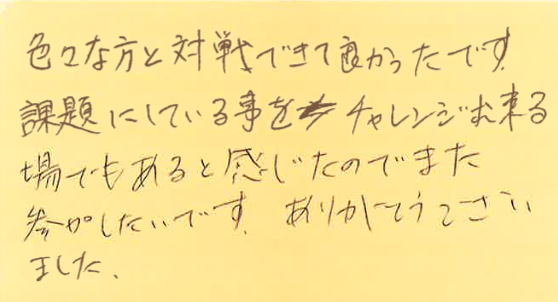 色々な方と対戦できて良かったです。
課題にしている事をチャレンジ出来る
場でもあると感じたのでまた
参加したいです。ありがとうござい
ました。